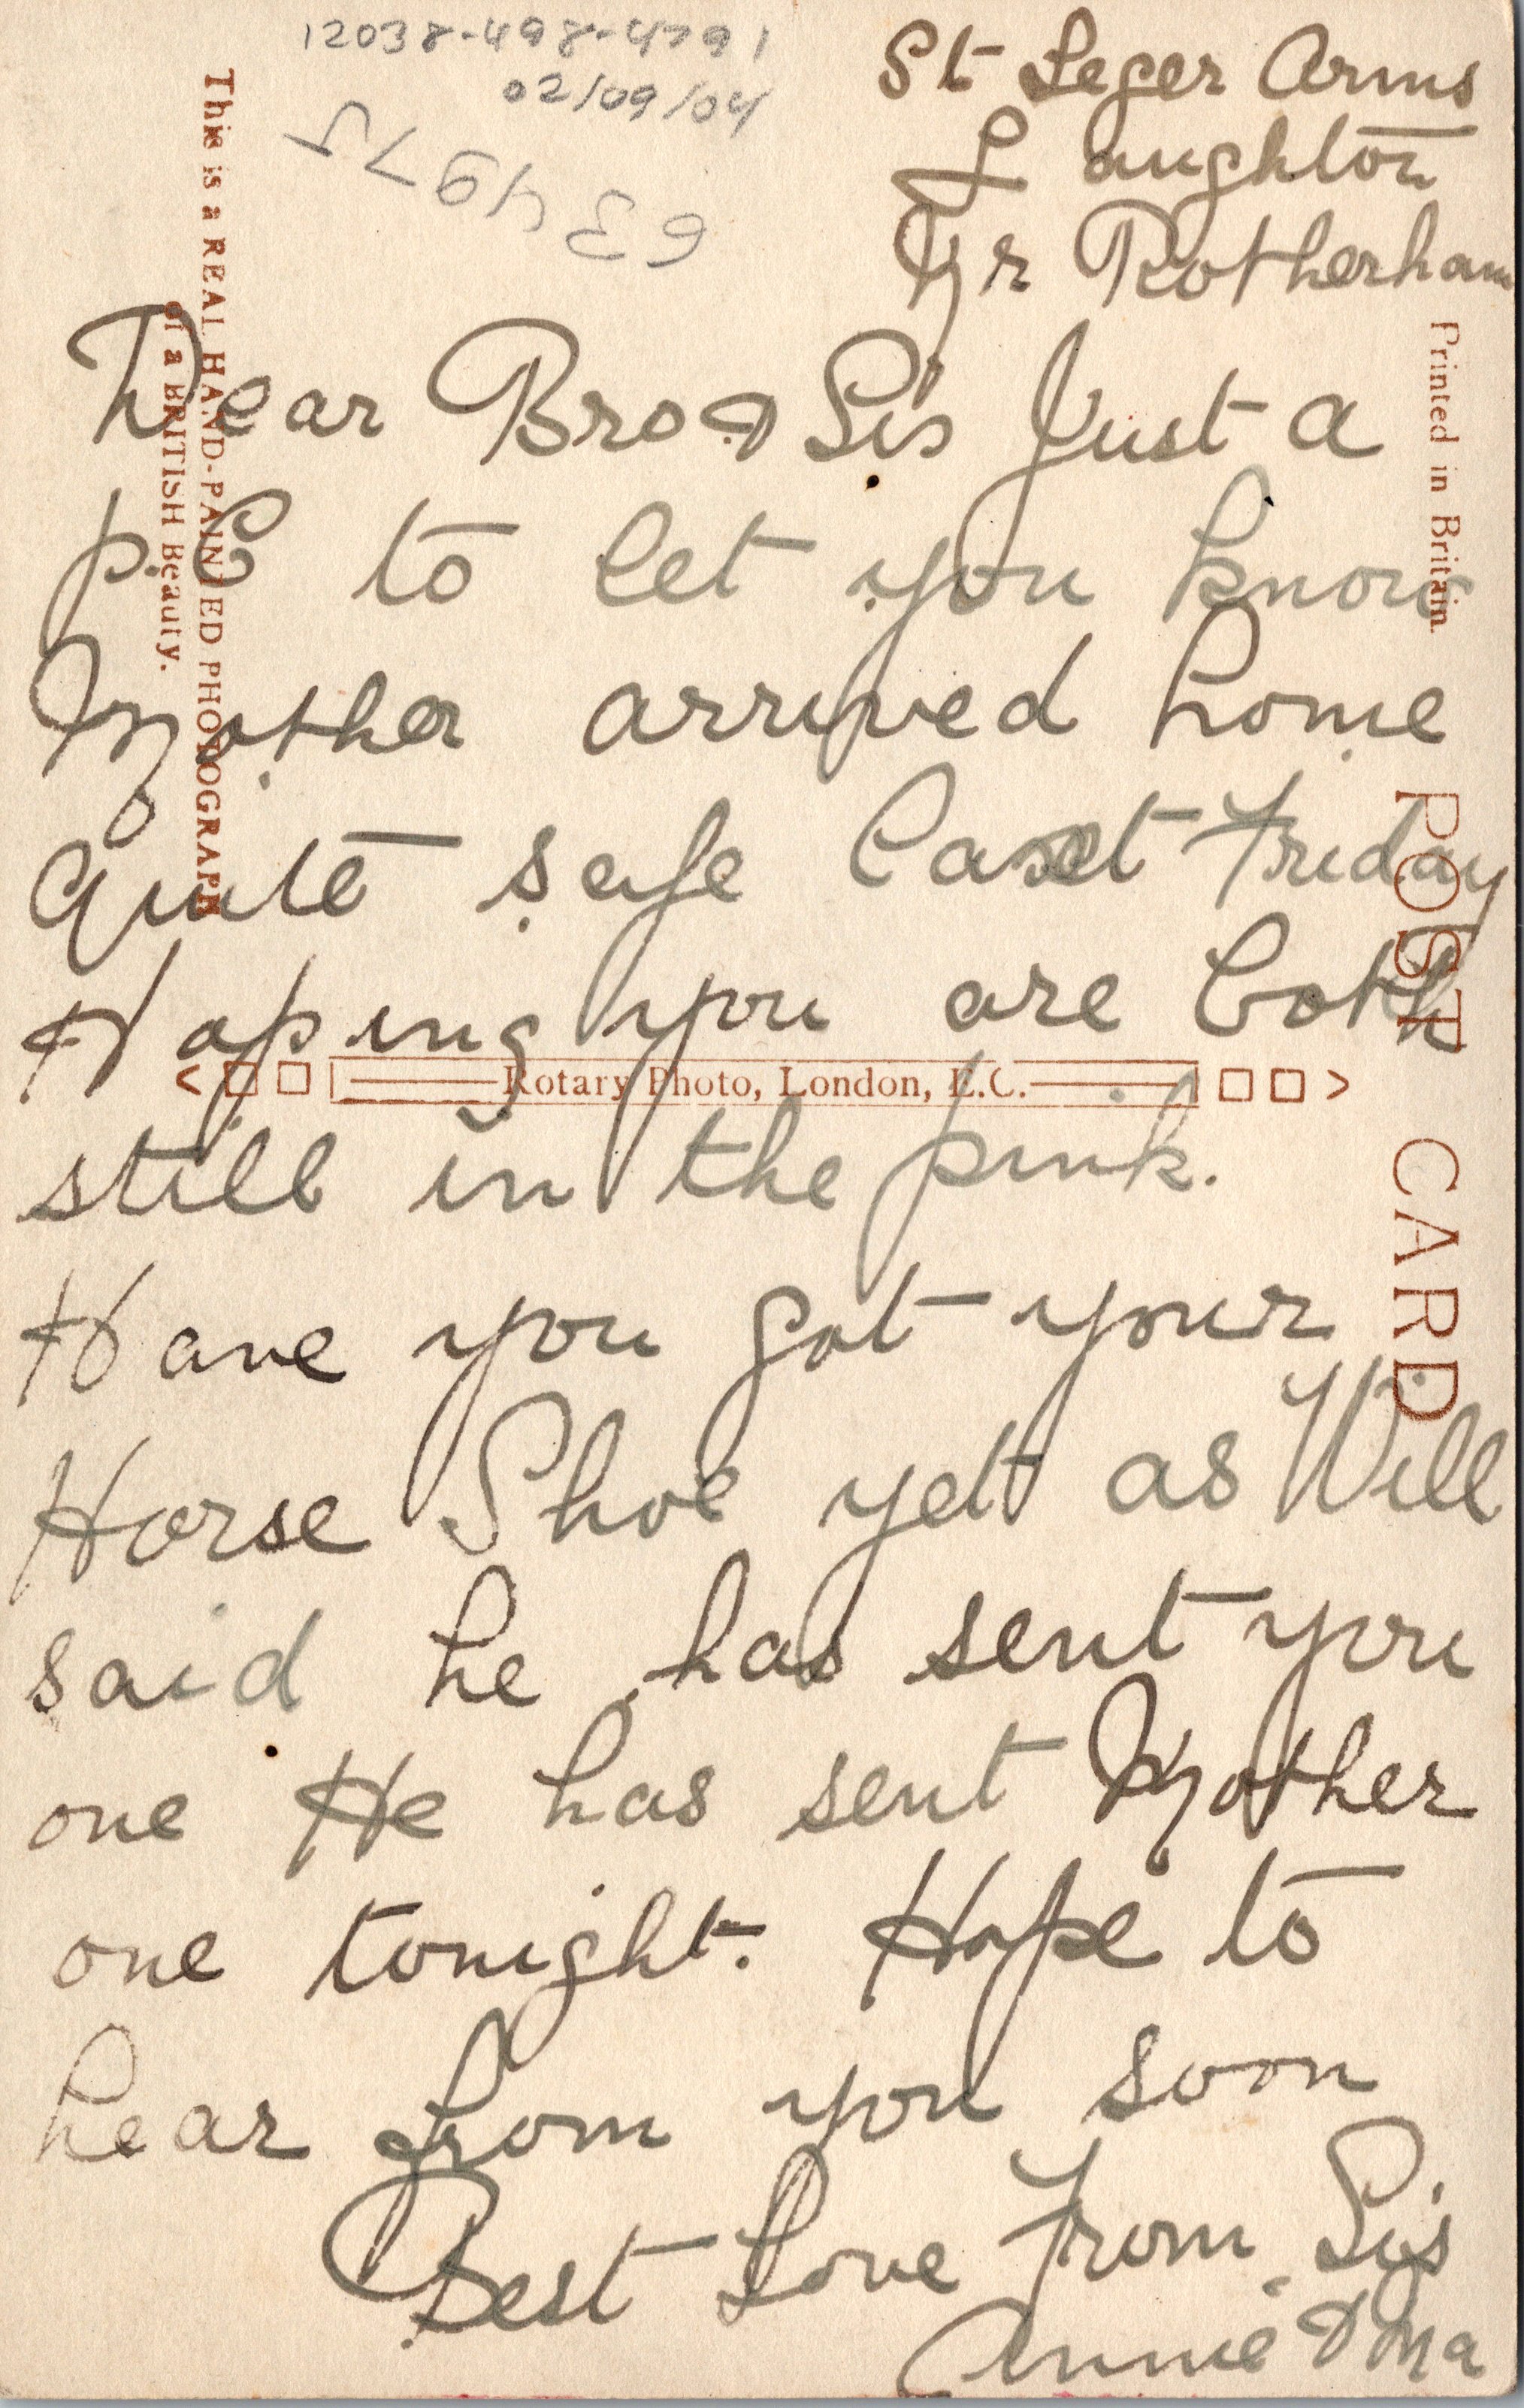 12038-498-4791
02/09/04
634975
St Leger Arms
Laughton
Nr Rotherham
Dear Bro & Sis Just a
p.c to let you know
Mother arrived home
Quite safe Last Friday
Hoping you are both
still in the pink.
Have you got your
Horse Shoe yet as Will
said he has sent you
one He has sent Mother
one tonight. Hope to
hear from you soon
Best Love From Sis
Annie & Ma
This is a REAL HAND-PAINTED PHOTOGRAPH
of a BRITISH Beauty.
Rotary Photo, London, E.C.
POST CARD
Printed in Britain.